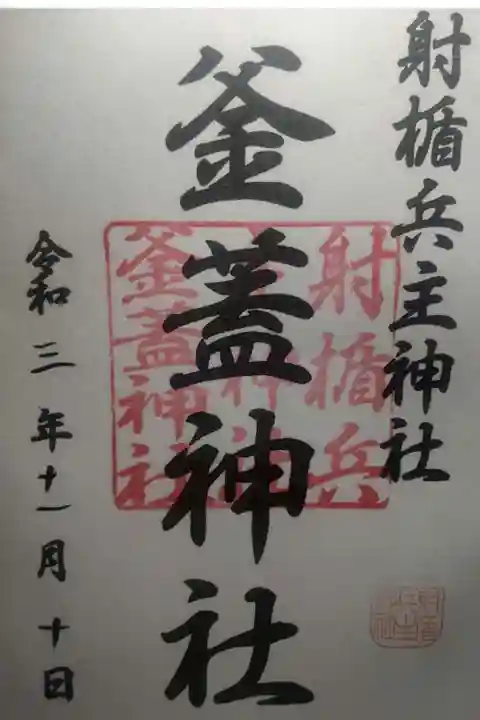 射楯兵主神社
釜蓋神社
令和三年十一月十日
射楯兵
主神社
釜蓋神社